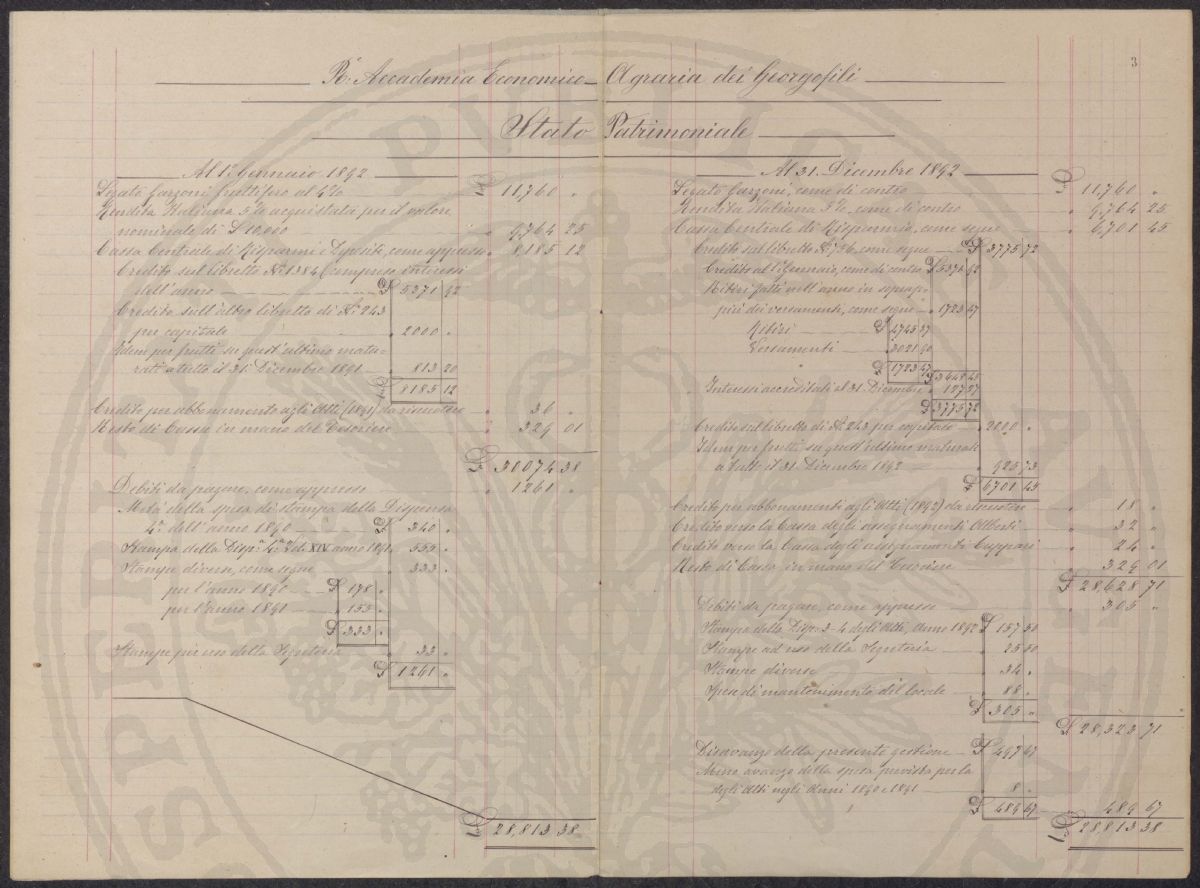 3
R. Accademia Economico-Agraria dei Georgofili
Stato Patrimoniale
Al 1° Gennaio 1892
Legato Garzoni fruttifero al 4% £ 11,760 "
Rendita Italiana 5% acquistata per il valore
nominale di £ 10,000 " 9,764 25
Cassa Centrale di Risparmi e Depositi, come appresso " 8,185 12
Credito sul libretto N° 1384 (compresi interessi
dell'anno £ 5371 92
Credito sull'altro libretto di N° 243
per capitale " 2000 "
Idem per frutti su quest'ultimo matu-
rati a tutto il 31 Dicembre 1891 " 813 20
£ 8185 12
Credito per abbonamento agli Atti (1891) da riscuotere " 36 "
Resto di Cassa in mano del Tesoriere " 329 01
£ 30074 38
Debiti da pagare, come appresso " 1261 "
Metà della spesa di stampa della Dispensa
4ª dell'anno 1890 £ 340 "
Stampa della Disp. XIV anno 1891 " 555 "
Stampe diverse, come segue " 333 "
per l'anno 1890 £ 178 "
per l'anno 1891 " 155 "
£ 333 "
Stampe per uso della Segreteria " 33 "
£ 1261 "
£ 28,813 38
Al 31 Dicembre 1892
Legato Garzoni, come di contro £ 11,760 "
Rendita Italiana 5%, come di contro " 9,764 25
Cassa Centrale di Risparmio, come segue " 6,701 45
Credito sul libretto come segue £ 3775 72
Credito al 1° Gennaio, come di contro £ 5371 92
Ritiri fatti nell'anno in soprap-
più dei versamenti, come segue " 1723 47
Ritiri £ 4745 37
Versamenti " 3021 90
£ 1723 47
£ 3648 45
Interessi accreditati al 31 Dicembre " 127 27
£ 3775 72
Credito sul libretto di N° 243 per capitale " 2000 "
Idem per frutti su quest'ultimo maturati
a tutto il 31 Dicembre 1892 " 925 73
£ 6701 45
Credito per abbonamenti agli Atti (1892) da riscuotere " 18 "
Credito verso la Cassa degli assegnamenti Alberti " 32 "
Credito verso la Cassa degli assegnamenti Cuppari " 24 "
Resto di Cassa in mano del Tesoriere " 329 01
£ 28,628 71
Debiti da pagare, come appresso " 305 "
Stampa delle Disp. 3-4 degli Atti, Anno 1892 £ 157 50
Stampe ad uso della Segreteria " 25 50
Stampe diverse " 34 "
Spese di mantenimento del locale " 88 "
£ 305 "
£ 28,323 71
Disavanzo della presente gestione £ 497 67
Meno avanzo della spesa prevista per la
degli Atti negli Anni 1890 e 1891 " 8 "
£ 489 67 " 489 67
£ 28,813 38